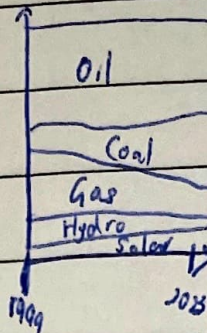 Oil
Coal
Gas
Hydro
Solar
1999